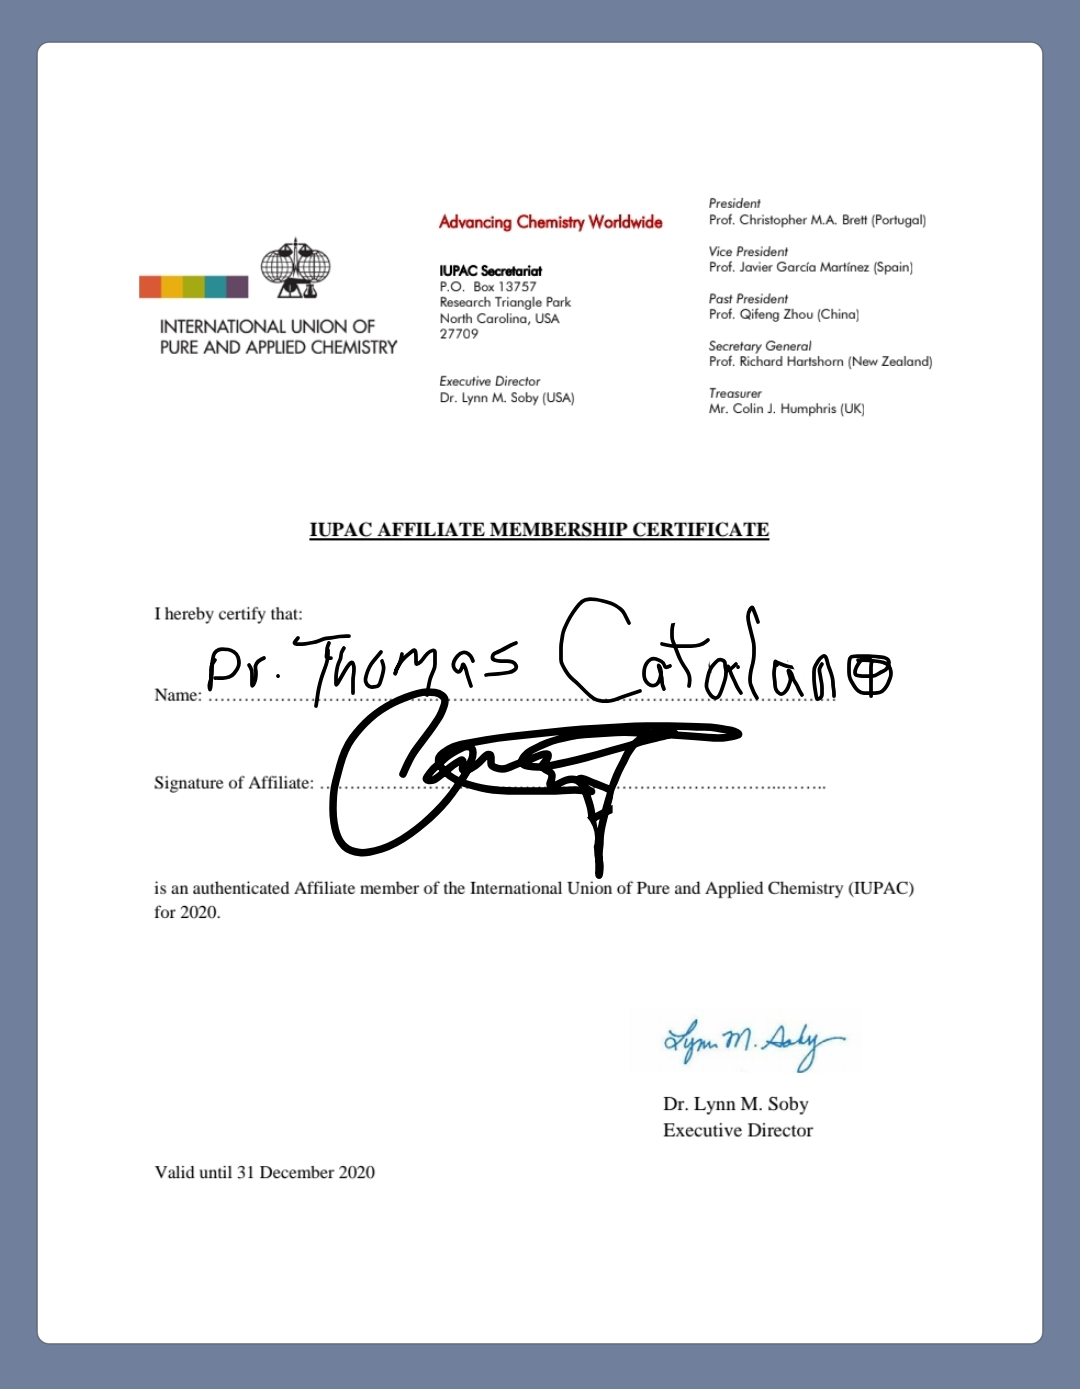 Advancing Chemistry Worldwide
INTERNATIONAL UNION OF
PURE AND APPLIED CHEMISTRY
IUPAC Secretariat
P.O. Box 13757
Research Triangle Park
North Carolina, USA
27709
Executive Director
Dr. Lynn M. Soby (USA)
President
Prof. Christopher M.A. Brett (Portugal)
Vice President
Prof. Javier García Martínez (Spain)
Past President
Prof. Qifeng Zhou (China)
Secretary General
Prof. Richard Hartshorn (New Zealand)
Treasurer
Mr. Colin J. Humphris (UK)
IUPAC AFFILIATE MEMBERSHIP CERTIFICATE
I hereby certify that:
Name: Dr. Thomas Catalano
Signature of Affiliate:
is an authenticated Affiliate member of the International Union of Pure and Applied Chemistry (IUPAC)
for 2020.
Lynn M. Soby
Dr. Lynn M. Soby
Executive Director
Valid until 31 December 2020